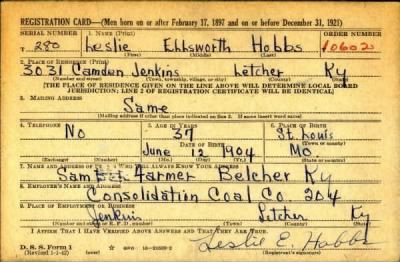 REGISTRATION CARD—(Men born on or after February 17, 1897 and on or before December 31, 1921)
SERIAL NUMBER 1. NAME (Print) ORDER NUMBER
T 280 Leslie Ellsworth Hobbs 10602
(First) (Middle) (Last)
2. PLACE OF RESIDENCE (Print)
3031 Camden Jenkins Letcher Ky
(Number and street) (Town, township, village, or city) (County) (State)
[THE PLACE OF RESIDENCE GIVEN ON THE LINE ABOVE WILL DETERMINE LOCAL BOARD
JURISDICTION; LINE 2 OF REGISTRATION CERTIFICATE WILL BE IDENTICAL]
3. MAILING ADDRESS
Same
(Mailing address if other than place indicated on line 2. If same insert word same)
4. TELEPHONE 5. AGE IN YEARS 6. PLACE OF BIRTH
No 37 St. Louis
DATE OF BIRTH (Town or county)
June 12 1904 Mo.
(Exchange) (Number) (Mo.) (Day) (Yr.) (State or country)
7. NAME AND ADDRESS OF PERSON WHO WILL ALWAYS KNOW YOUR ADDRESS
Sam Farmer Belcher Ky
8. EMPLOYER'S NAME AND ADDRESS
Consolidation Coal Co. 204
9. PLACE OF EMPLOYMENT OR BUSINESS
Jenkins Letcher Ky
(Number and street or R. F. D. number) (Town) (County) (State)
I AFFIRM THAT I HAVE VERIFIED ABOVE ANSWERS AND THAT THEY ARE TRUE.
D. S. S. Form 1
(Revised 1-1-42) (over) Leslie E. Hobbs